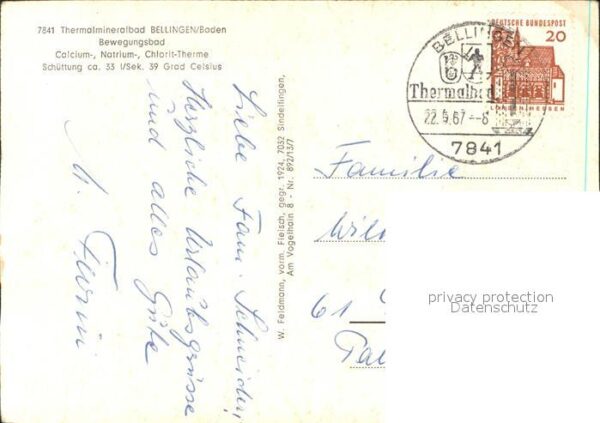 7841 Thermalmineralbad BELLINGEN/Baden
Bewegungsbad
Calcium-, Natrium-, Chlorit-Therme
Schüttung ca. 33 l/Sek. 39 Grad Celsius
Liebe Fam. Schneider,
Herzliche Urlaubsgrüsse
und alles Gute
W. Feldmann, vorm. Fleisch, gegr. 1924, 7032 Sindelfingen,
Am Vogelhain 8 - Nr. 892/13/7
BELLINGEN
Thermalbad
22.9.67 -8
7841
DEUTSCHE BUNDESPOST
20
LORSCH/HESSEN
Familie
61
privacy protection
Datenschutz